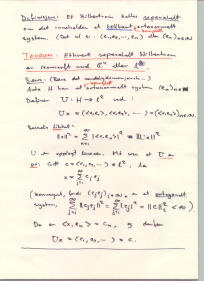 Definition: Et Hilbertrum kaldes separabelt
om det indeholder et tællbart ortonormalt
system. (Det vil si: (e₁, e₂, ..., eₙ) eller (eₙ)n∈ℕ)
Teorem: Ethvert separabelt Hilbertrum
er isomorft med ℂⁿ eller ℓ²
Bevis: (Bare det uendeligdimensjonale...)
Anta H har et ortonormalt system (eₙ)n∈ℕ
Definer U: H → ℓ² ved:
Ux = (<x,e₁>, <x,e₂>, ...) = (<x,eₙ>)n∈ℕ
‖x‖² = Σ |<x,eⱼ>|² = ‖Ux‖²
U er
c = (c₁, c₂, ...) ∈ ℓ², da
x = Σ cⱼ eⱼ
(konvergent, fordi (cⱼeⱼ)j∈ℕ er et ortogonalt
system, Σ ‖cⱼeⱼ‖² = Σ |cⱼ|² = ‖c‖² < ∞)
Da er <x, eₙ> = cₙ, og derfor
Ux = (c₁, c₂, ...) = c.